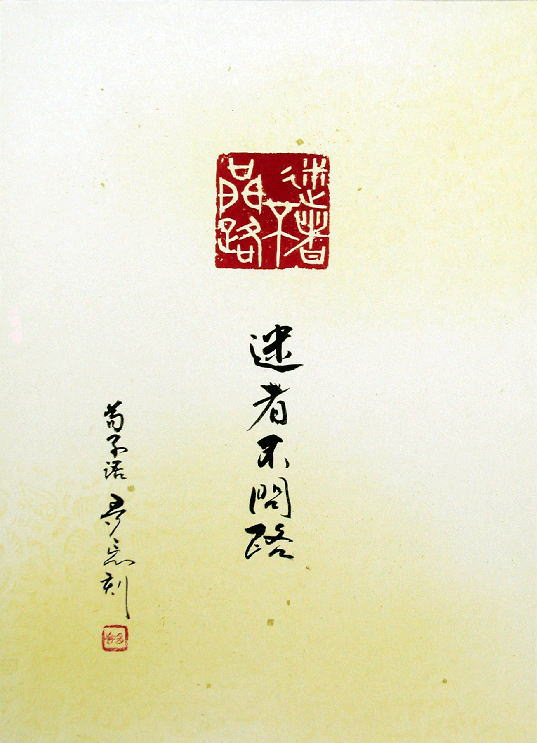 迷者不問路
迷者不問路
荀子语 刻